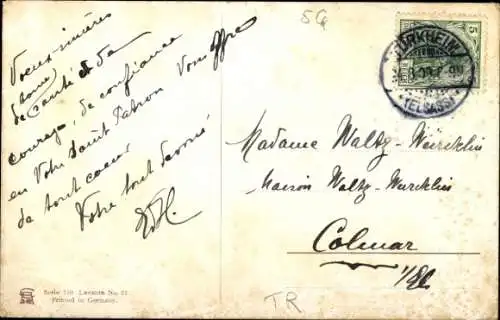 Voeux sincères
(bonne)
de santé et de
courage, de confiance
en Votre Saint Patron
de tout coeur
Votre tout dévoué
56
5
TÜRKHEIM
(ELSASS)
Madame Waltz-Würcklin
Maison Waltz-Wurcklin
Colmar
i/Els
Printed in Germany.
TR